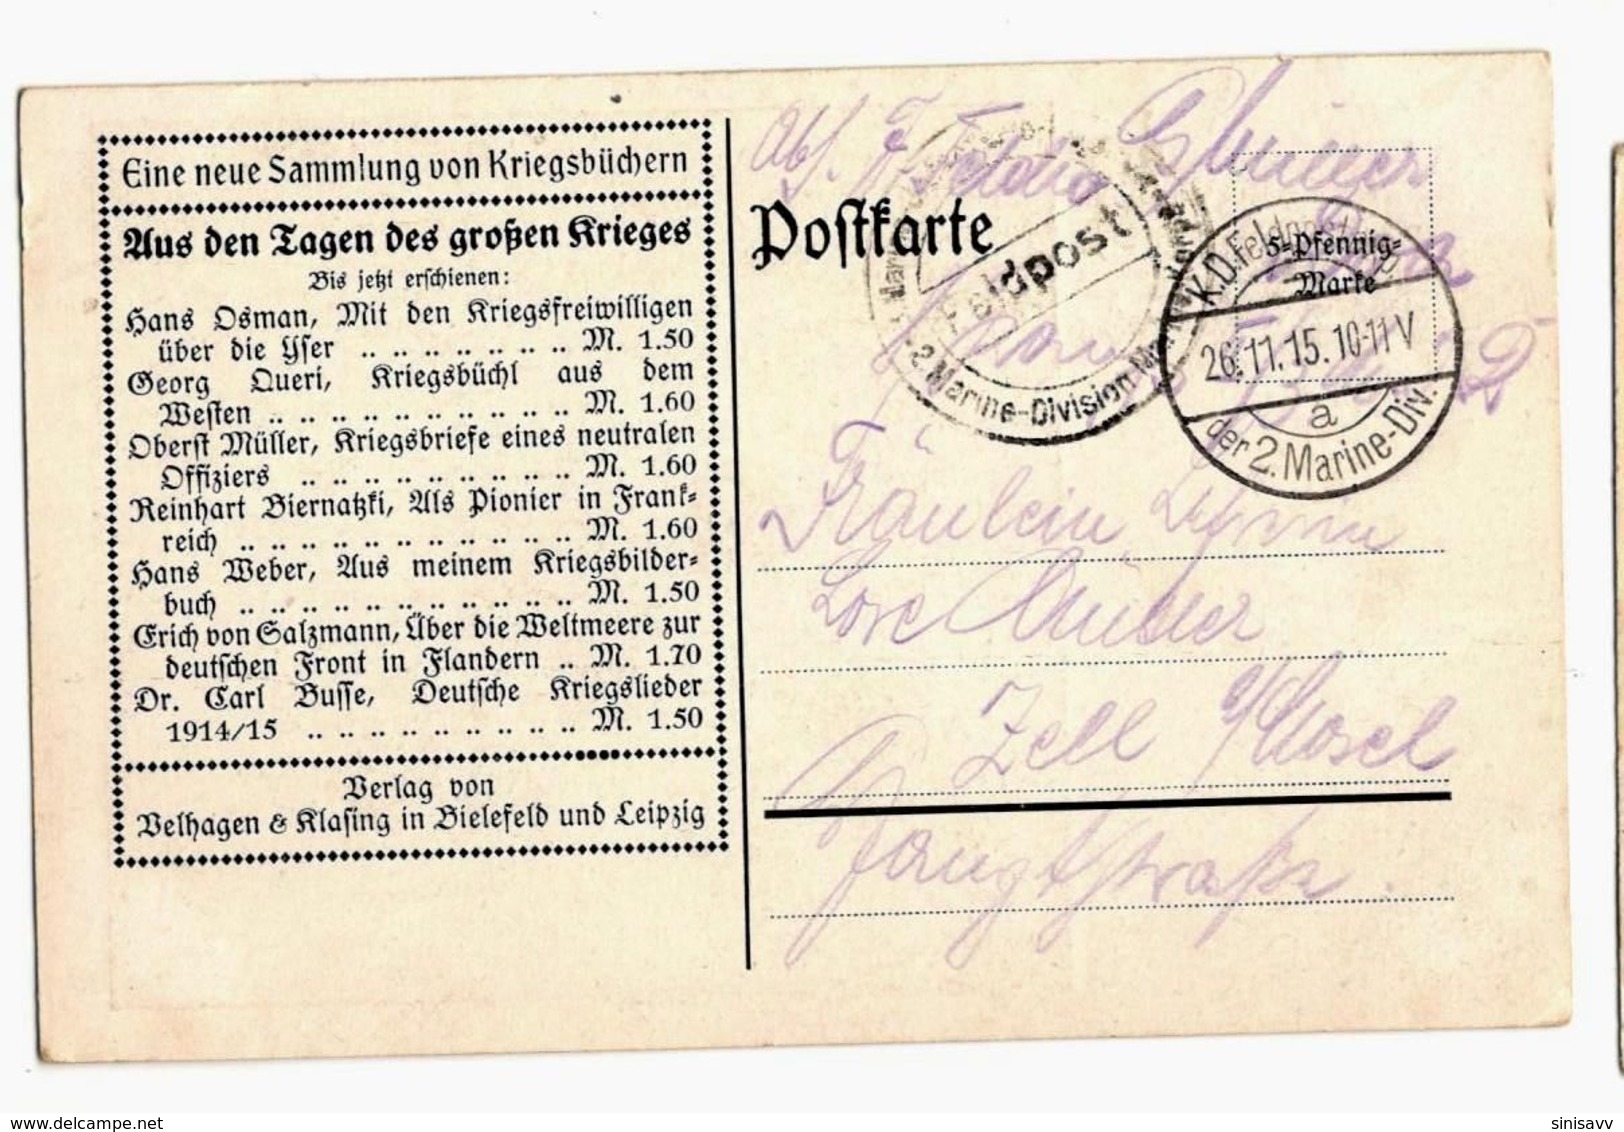 Eine neue Sammlung von Kriegsbüchern
Aus den Tagen des großen Krieges
Bis jetzt erschienen:
Hans Osman, Mit den Kriegsfreiwilligen
über die Yser .. .. .. .. .. .. .. M. 1.50
Georg Queri, Kriegsbüchl aus dem
Westen .. .. .. .. .. .. .. .. .. .. M. 1.60
Oberst Müller, Kriegsbriefe eines neutralen
Offiziers .. .. .. .. .. .. .. .. .. M. 1.60
Reinhart Biernatzki, Als Pionier in Frank=
reich .. .. .. .. .. .. .. .. .. .. .. M. 1.60
Hans Weber, Aus meinem Kriegsbilder=
buch .. .. .. .. .. .. .. .. .. .. .. M. 1.50
Erich von Salzmann, Über die Weltmeere zur
deutschen Front in Flandern .. M. 1.70
Dr. Carl Busse, Deutsche Kriegslieder
1914/15 .. .. .. .. .. .. .. .. .. M. 1.50
Verlag von
Velhagen & Klasing in Bielefeld und Leipzig
Abs.
Postkarte
Feldpost
2. Marine-Division
5=Pfennig=
Marke
K.D.Feldpost
26.11.15.10-11V
a
der 2. Marine-Div.
Fräulein
Lore Müller
Zell a/Mosel
Hauptstraße.
sinisavv